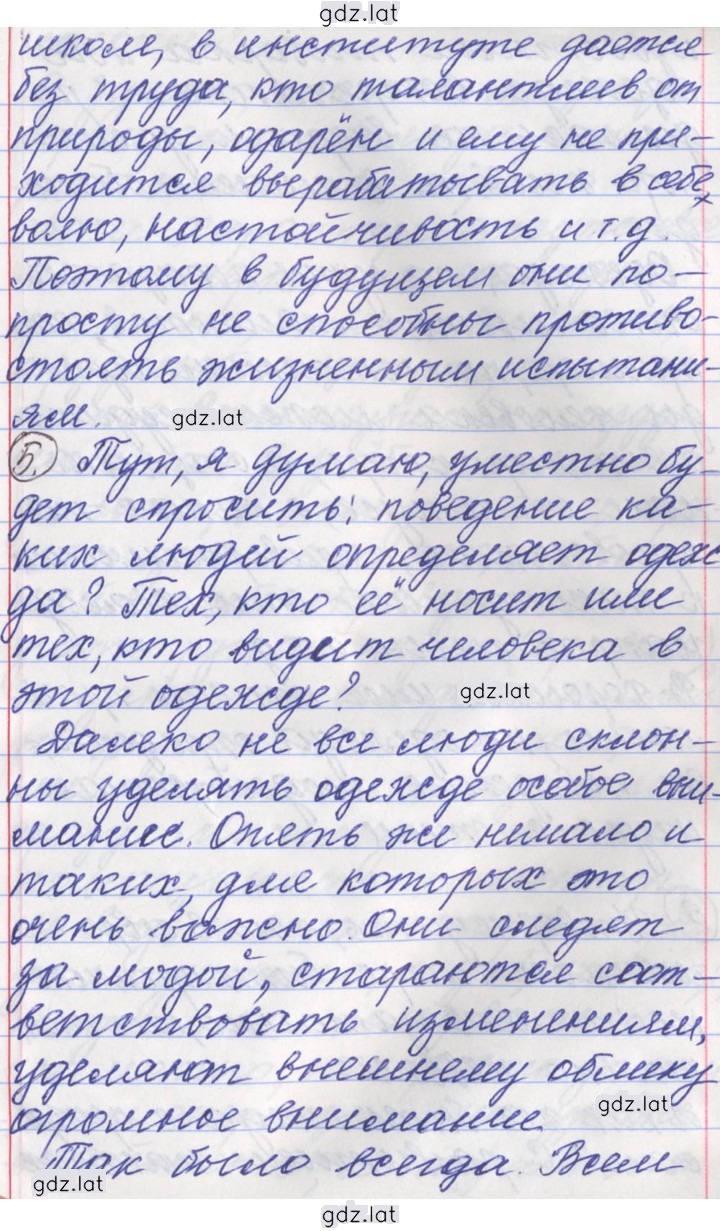 gdz.lat
школе, в институте даётся
без труда, кто талантлив от
природы, одарён и ему не при-
ходится вырабатывать в себе
волю, настойчивость и т.д.
Поэтому в будущем они по-
просту не способны противо-
стоять жизненным испытани-
ям.
gdz.lat
5. Тут, я думаю, уместно бу-
дет спросить: поведение ка-
ких людей определяет одеж
да? Тех, кто её носит или
тех, кто видит человека в
этой одежде?
gdz.lat
Далеко не все люди склон-
ны уделять одежде особое вни-
мание. Опять же немало и
таких, для которых это
очень важно. Они следят
за модой, стараются соот-
ветствовать изменениям,
уделяют внешнему облику
gdz.lat
огромное внимание
Так было всегда. Всем
gdz.lat
gdz.lat